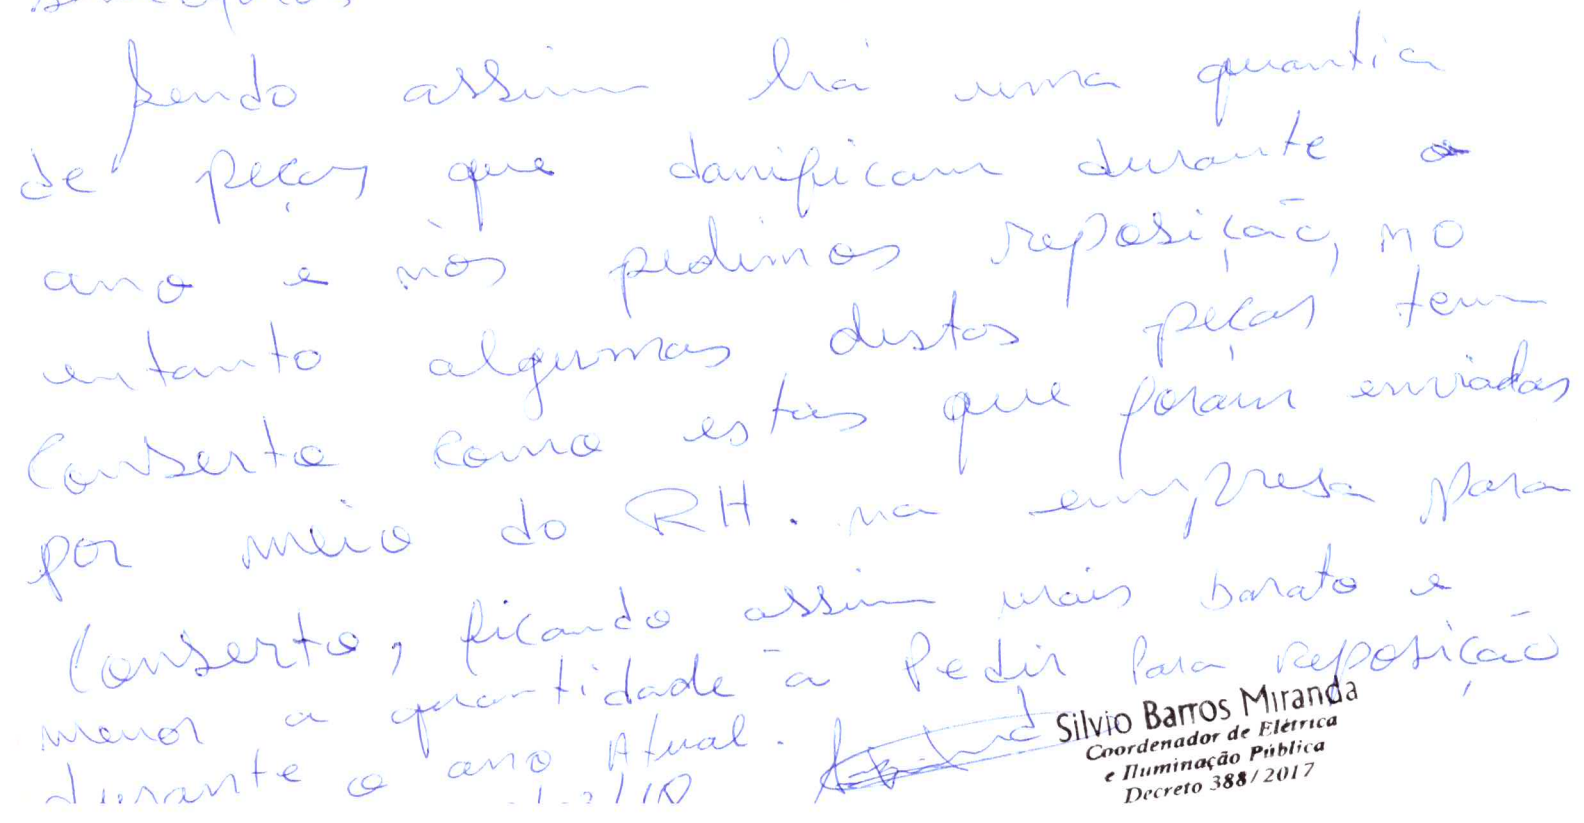 Sendo assim há uma quantia
de peças que danificam durante o
ano e nós pedimos reposição, no
entanto algumas destas peças tem
conserto como estas que foram enviadas
por meio do RH. na empresa para
Conserto, ficando assim mais barato e
menor a quantidade à Pedir para reposição
durante o ano Atual.
Silvio Barros Miranda
Coordenador de Elétrica
e Iluminação Pública
Decreto 388/2017